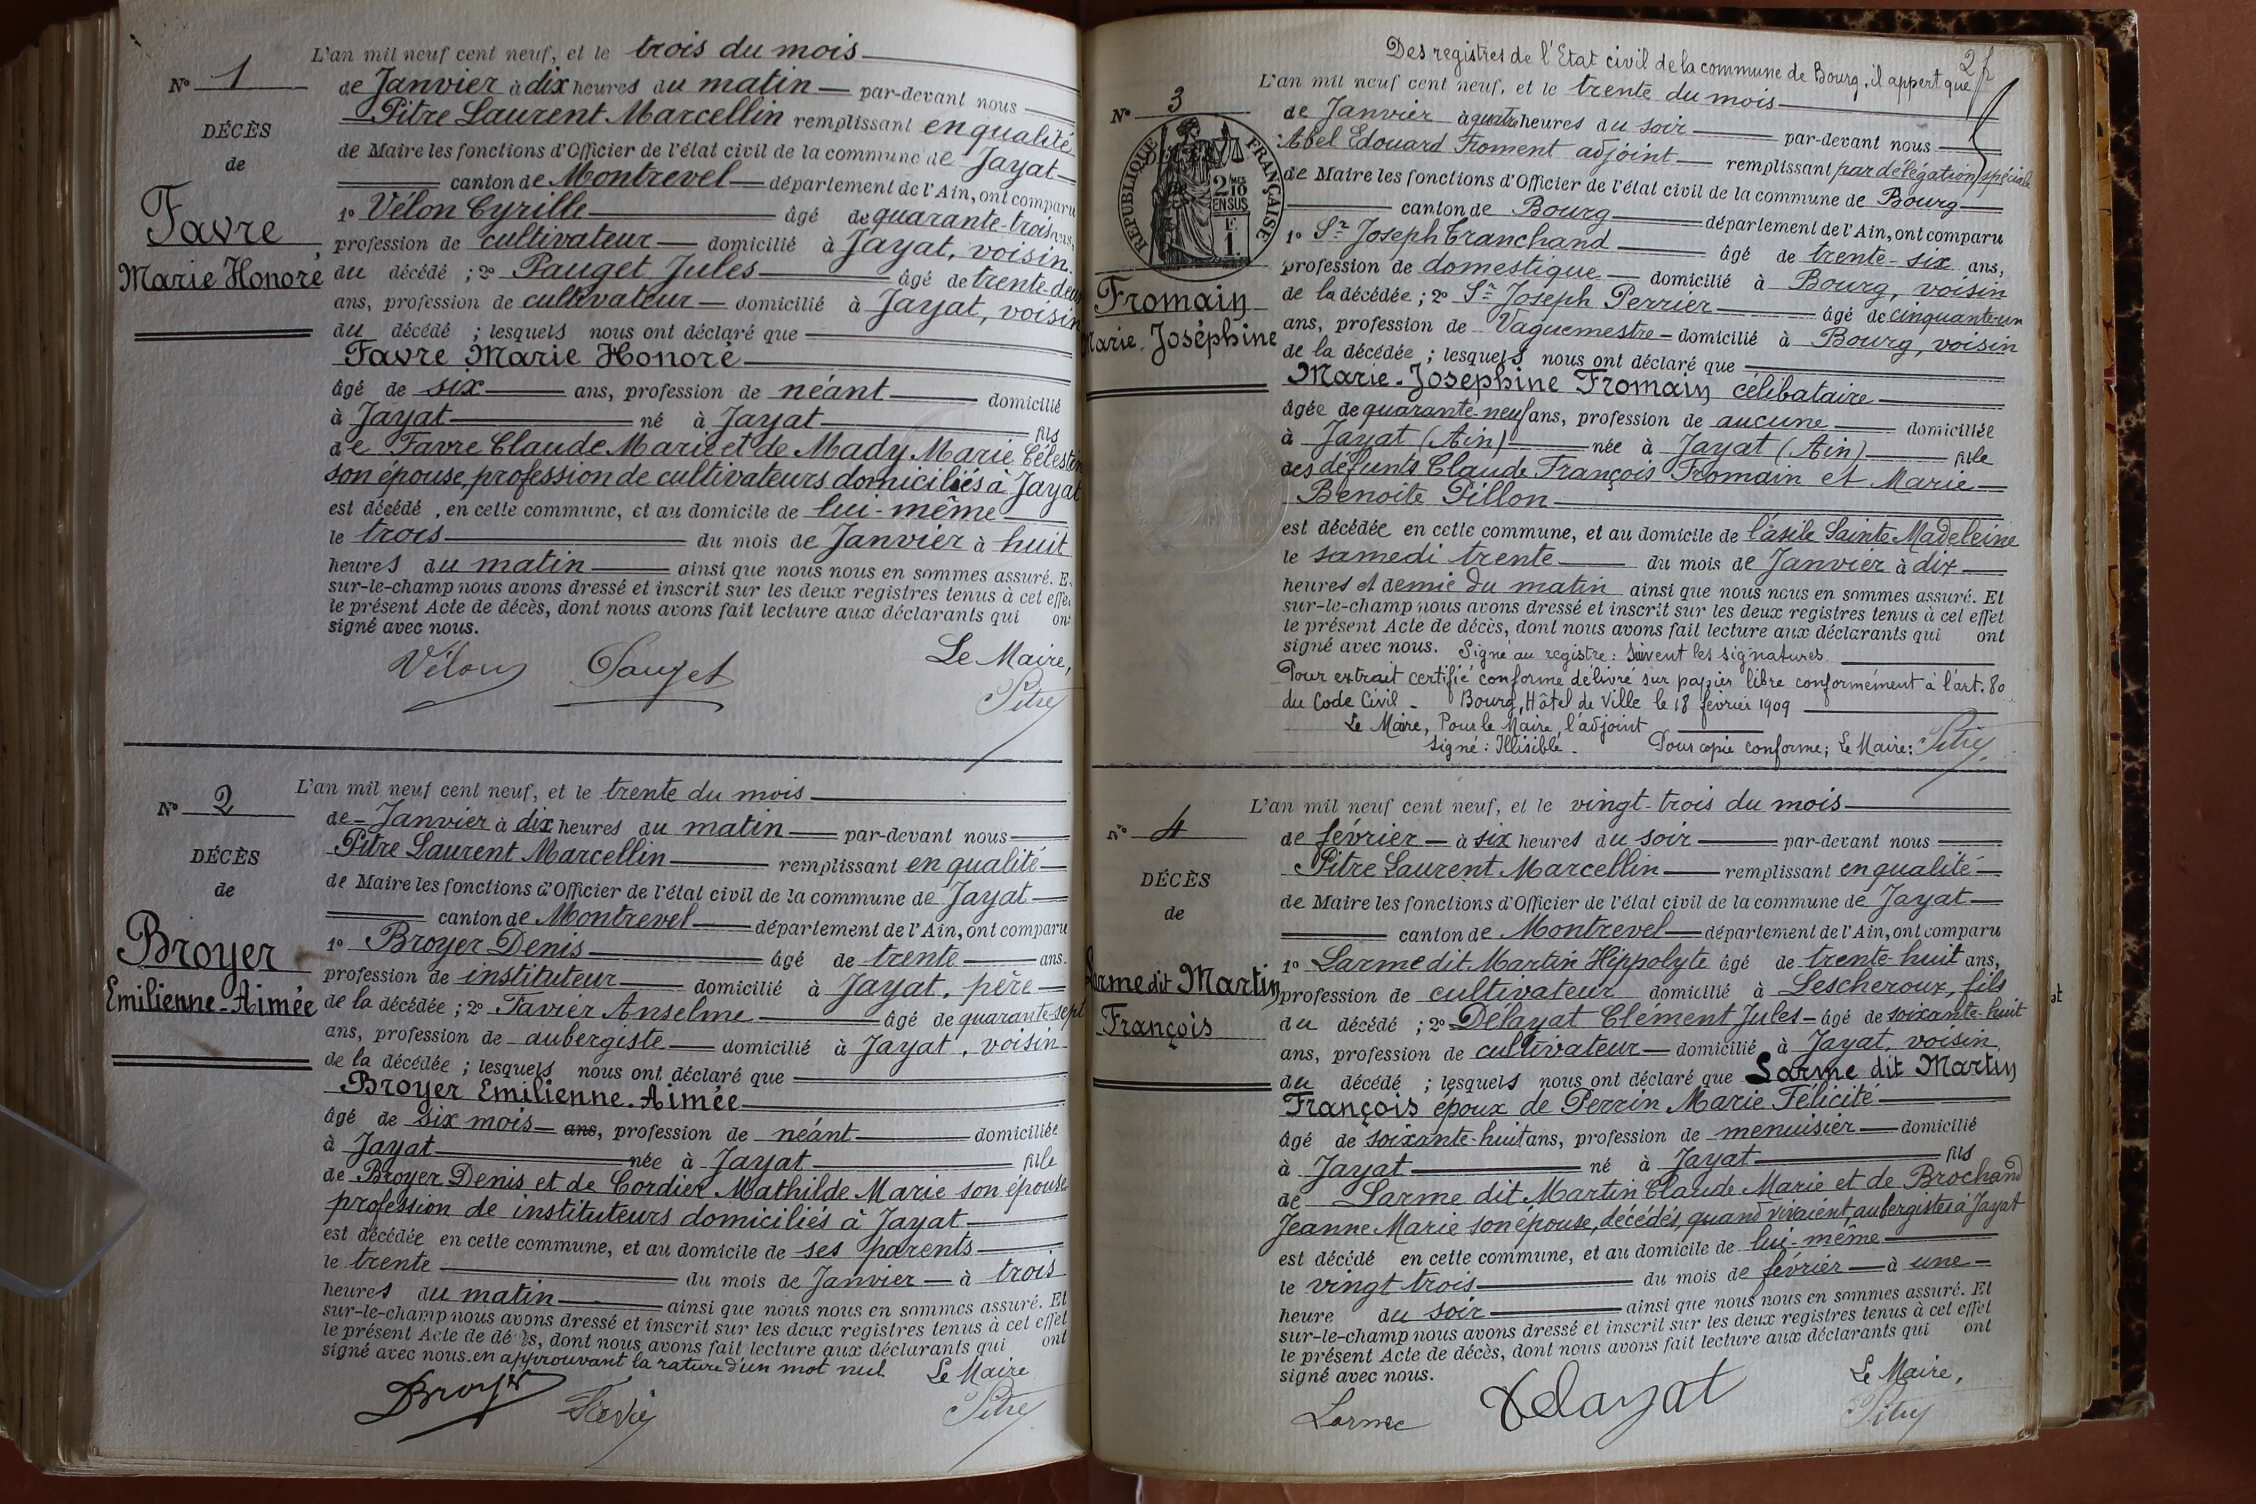 L'an mil neuf cent neuf, et le trois du mois
N° 1
de Janvier à dix heures du matin par-devant nous
Pitre Laurent Marcellin remplissant en qualité
DÉCÈS
de Maire les fonctions d'Officier de l'état civil de la commune de Jayat
de
canton de Montrevel département de l'Ain, ont comparu
Favre
Marie Honoré
1° Vélon Cyrille âgé de quarante-trois ans,
profession de cultivateur domicilié à Jayat, voisin
du décédé ; 2° Pauget Jules âgé de trente-deux
ans, profession de cultivateur domicilié à Jayat, voisin
du décédé ; lesquels nous ont déclaré que
Favre Marie Honoré
âgé de six ans, profession de néant domicilié
à Jayat né à Jayat fils
de Favre Claude Marie et de Mady Marie Célestin
son épouse, profession de cultivateurs domiciliés à Jayat
est décédé , en cette commune, et au domicile de lui-même
le trois du mois de Janvier à huit
heures du matin ainsi que nous nous en sommes assuré. E
sur-le-champ nous avons dressé et inscrit sur les deux registres tenus à cet effet
le présent Acte de décès, dont nous avons fait lecture aux déclarants qui ont
signé avec nous.
Vélon Pauget Le Maire,
Pitre
L'an mil neuf cent neuf, et le trente du mois
N° 2
de Janvier à dix heures du matin par-devant nous
Pitre Laurent Marcellin remplissant en qualité
DÉCÈS
de Maire les fonctions d'Officier de l'état civil de la commune de Jayat
de
canton de Montrevel département de l'Ain, ont comparu
Broyer
Emilienne-Aimée
1° Broyer Denis âgé de trente ans.
profession de instituteur domicilié à Jayat, père
de la décédée ; 2° Favier Anselme âgé de quarante-sept
ans, profession de aubergiste domicilié à Jayat, voisin
de la décédée ; lesquels nous ont déclaré que
Broyer Emilienne-Aimée
âgé de six mois ans, profession de néant domiciliée
à Jayat née à Jayat fille
de Broyer Denis et de Cordier Mathilde Marie son épouse
profession de instituteurs domiciliés à Jayat
est décédée en cette commune, et au domicile de ses parents
le trente du mois de Janvier à trois
heures du matin ainsi que nous nous en sommes assuré. Et
sur-le-champ nous avons dressé et inscrit sur les deux registres tenus à cet effet
le présent Acte de décès, dont nous avons fait lecture aux déclarants qui ont
signé avec nous en approuvant la rature d'un mot nul Le Maire
Broyer Favier Pitre
2f
Des registres de l'Etat civil de la commune de Bourg, il appert que
L'an mil neuf cent neuf, et le trente du mois
N° 3
de Janvier à quatre heures du soir par-devant nous
Abel Edouard Froment adjoint remplissant par délégation spéciale
RÉPUBLIQUE FRANÇAISE
2/10 EN SUS
1F
de Maire les fonctions d'Officier de l'état civil de la commune de Bourg
canton de Bourg département de l'Ain, ont comparu
1° Sr Joseph Tranchand âgé de trente-six ans,
profession de domestique domicilié à Bourg, voisin
Fromain
Marie-Joséphine
de la décédée ; 2° Sr Joseph Perrier âgé de cinquante un
ans, profession de Vaguemestre domicilié à Bourg, voisin
de la décédée ; lesquels nous ont déclaré que
Marie-Joséphine Fromain célibataire
âgée de quarante-neuf ans, profession de aucune domiciliée
à Jayat (Ain) née à Jayat (Ain) fille
des défunts Claude François Fromain et Marie
Benoite Pillon
est décédée en cette commune, et au domicile de l'asile Sainte Madeleine
le samedi trente du mois de Janvier à dix
heures et demie du matin ainsi que nous nous en sommes assuré. Et
sur-le-champ nous avons dressé et inscrit sur les deux registres tenus à cet effet
le présent Acte de décès, dont nous avons fait lecture aux déclarants qui ont
signé avec nous. Signé au registre : Suivent les signatures
Pour extrait certifié conforme délivré sur papier libre conformément à l'art. 80
du Code Civil - Bourg, Hôtel de Ville le 18 février 1909
Le Maire, Pour le Maire, l'adjoint
signé : Illisible. Pour copie conforme ; Le Maire : Pitre
L'an mil neuf cent neuf, et le vingt-trois du mois
N° 4
de février à six heures du soir par-devant nous
Pitre Laurent Marcellin remplissant en qualité
DÉCÈS
de Maire les fonctions d'Officier de l'état civil de la commune de Jayat
de
canton de Montrevel département de l'Ain, ont comparu
Larme dit Martin
François
1° Larme dit Martin Hippolyte âgé de trente-huit ans,
profession de cultivateur domicilié à Lescheroux, fils
du décédé ; 2° Délayat Clément Jules âgé de soixante-huit
ans, profession de cultivateur domicilié à Jayat, voisin
du décédé ; lesquels nous ont déclaré que Larme dit Martin
François époux de Perrin Marie Félicité
âgé de soixante-huit ans, profession de menuisier domicilié
à Jayat né à Jayat fils
de Larme dit Martin Claude Marie et de Brochand
Jeanne Marie son épouse, décédés, quand vivaient, aubergistes à Jayat
est décédé en cette commune, et au domicile de lui-même
le vingt trois du mois de février à une
heure du soir ainsi que nous nous en sommes assuré. Et
sur-le-champ nous avons dressé et inscrit sur les deux registres tenus à cet effet
le présent Acte de décès, dont nous avons fait lecture aux déclarants qui ont
signé avec nous.
Le Maire,
Larme Delayat Pitre